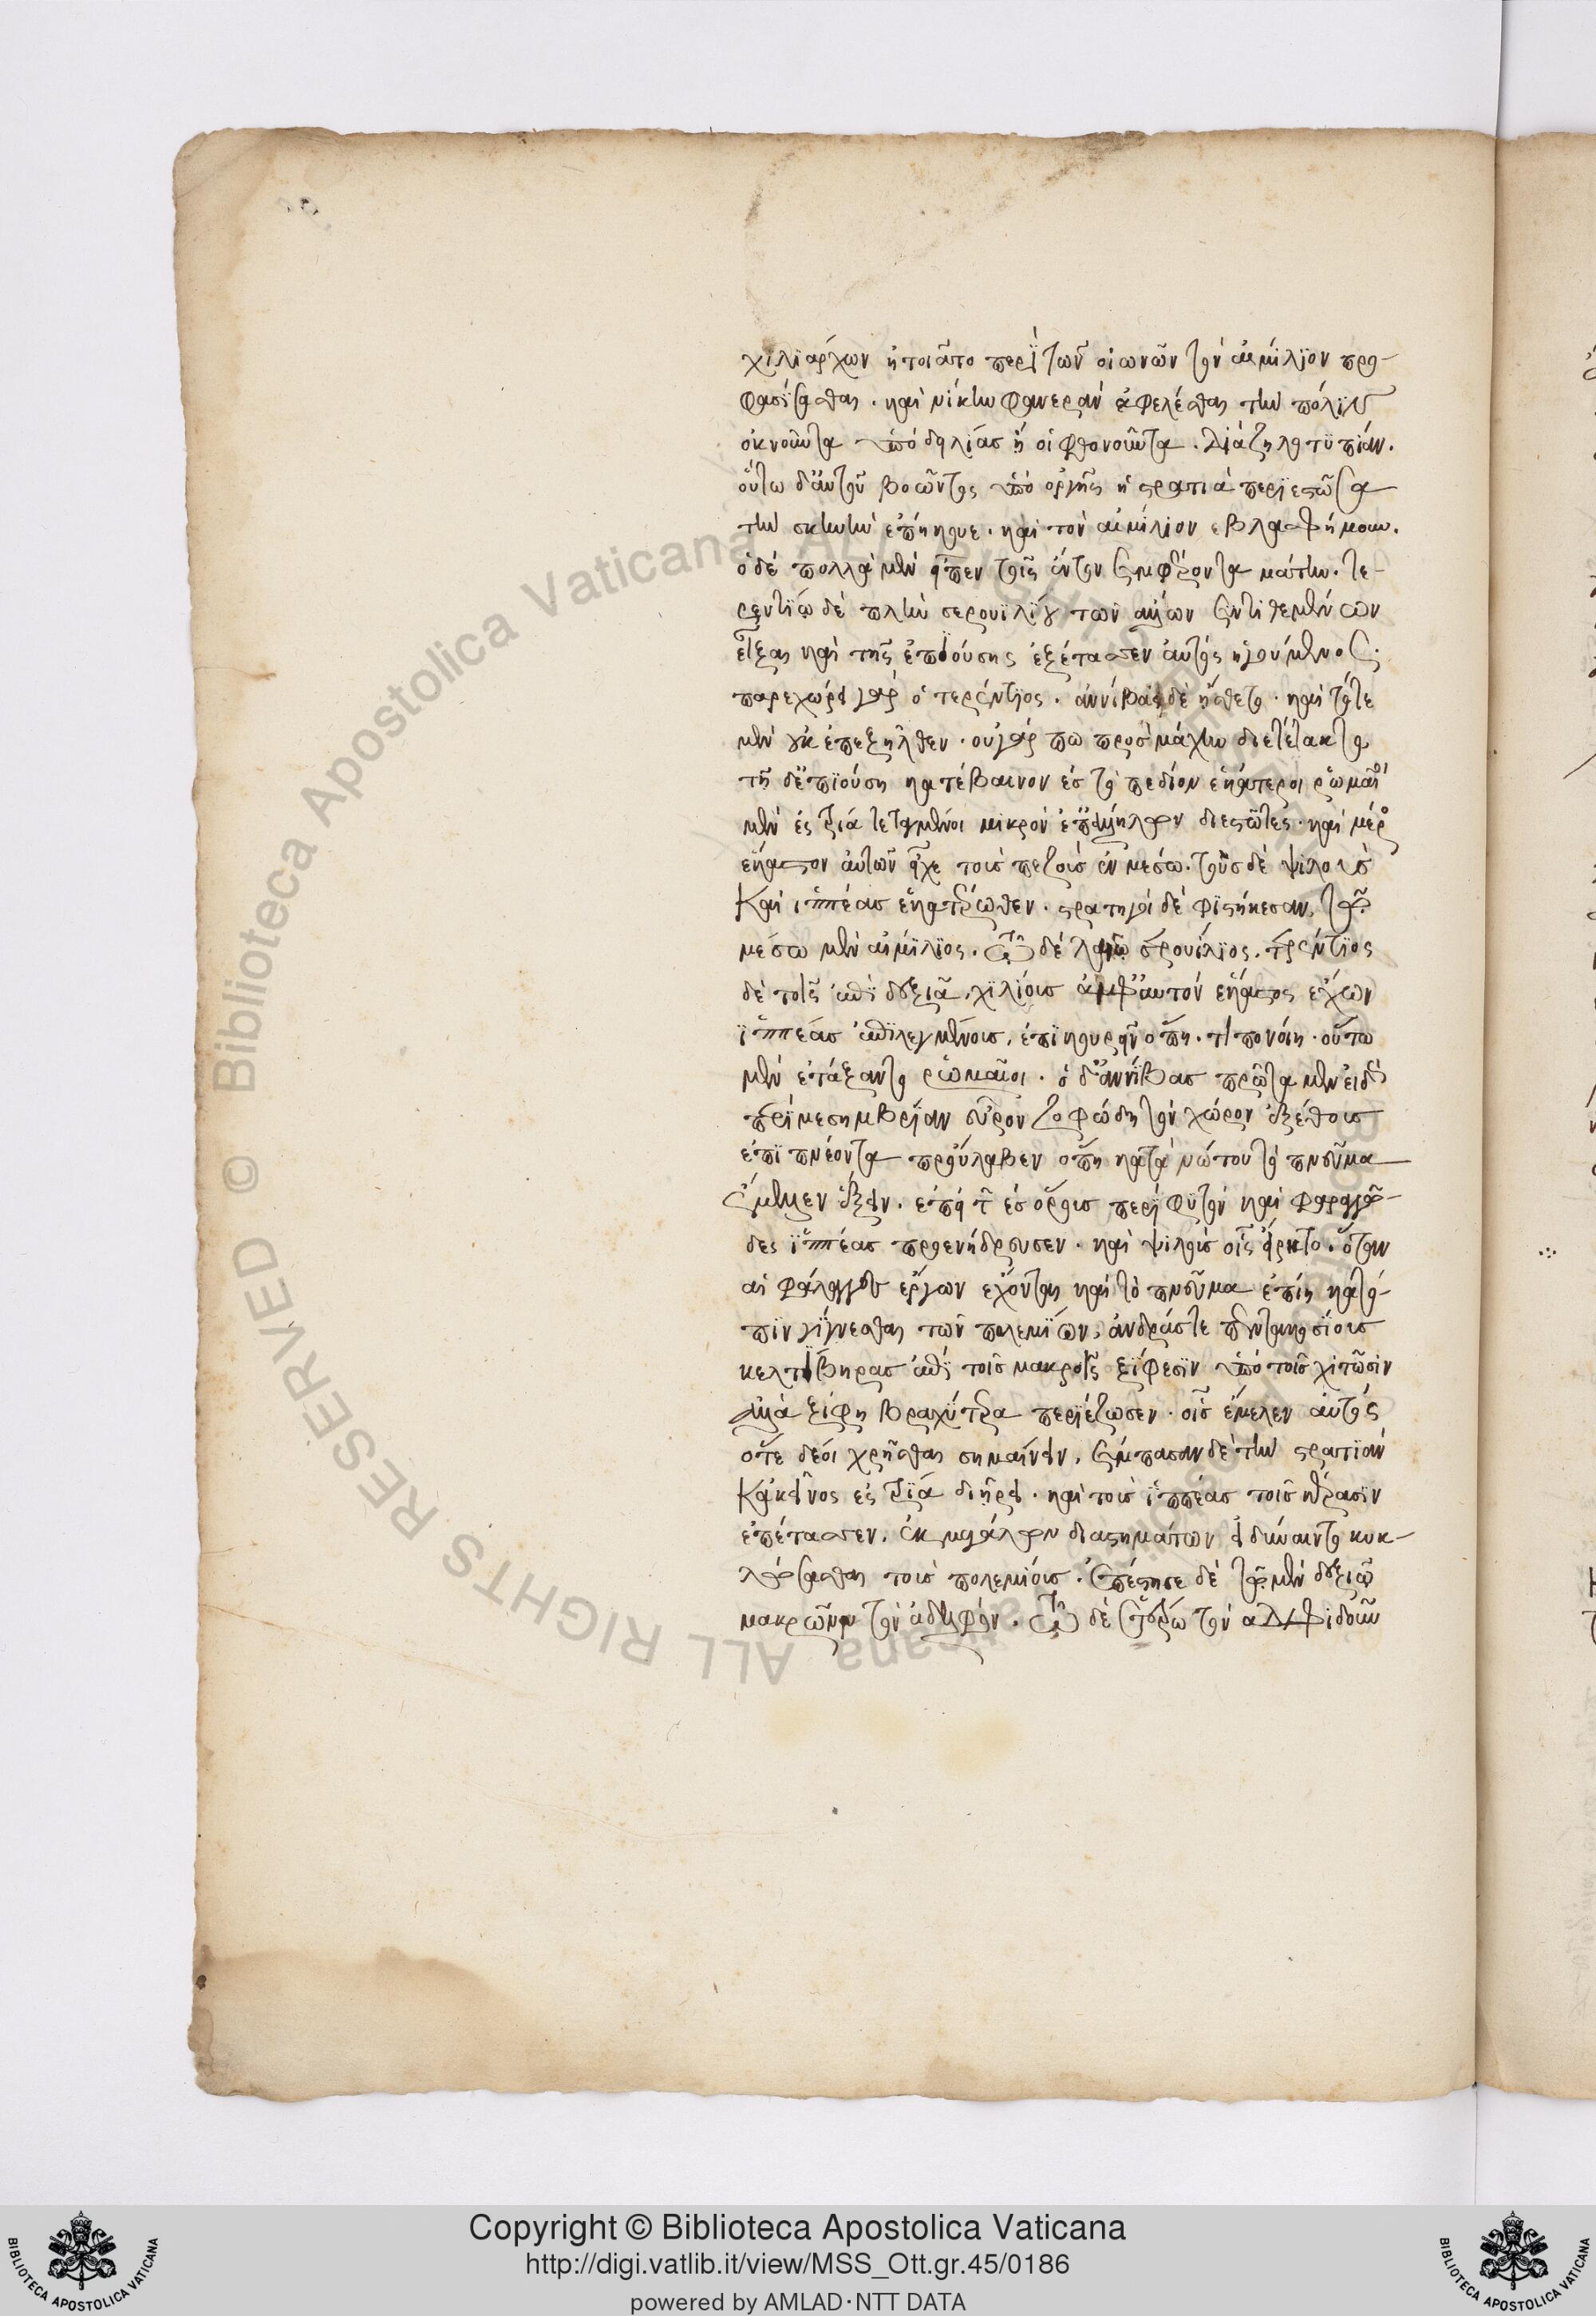 χιλιάρχων ἠτιᾶτο περὶ τῶν οἰωνῶν τὸν αἰμίλιον προ-
φασίσασθαι. καὶ νίκην φανερὰν ἀφελέσθαι τὴν πόλιν
ὀκνοῦντα ὑπὸ δειλίας ἢ οἱ φθονοῦντα. διὰ ζηλοτυπίαν.
οὕτω δ' αὐτοῦ βοῶντος ὑπὸ ὀργῆς ἡ στρατιὰ περιεστῶσα
τὴν σκηνὴν ἐπήκουε. καὶ τὸν αἰμίλιον ἐβλασφήμουν.
ὁ δὲ πολλὰ μὲν εἶπεν τοῖς ἐντὸν συμφέροντα μάτην. τε-
ρεντίῳ δὲ πλὴν σερουϊλίου τῶν ἄλλων συντιθεμένων
εἶξαι καὶ τῆς ἐπιούσης ἐξέτασσεν αὐτὸς ἡγούμενος.
παρεχώρει γὰρ ὁ τερέντιος. ἀννίβας δὲ ᾔσθετο. καὶ τότε
μὲν οὐκ ἐπεξῆλθεν. οὐ γάρ πω πρὸς μάχην διετέτακτο
τῇ δ' ἐπιούσῃ κατέβαινον ἐς τὸ πεδίον ἑκάτεροι ῥωμαῖοι
μὲν ἐς τρία τεταγμένοι μικρὸν ἀπ' ἀλλήλων διεστῶτες. καὶ μέρος
ἕκαστον αὐτῶν εἶχε τοὺς πεζοὺς ἐν μέσω. τοὺς δὲ ψιλοὺς
καὶ ἱππέας ἑκατέρωθεν. στρατηγοὶ δὲ ἐφιστήκεσαν, τῷ
μέσω μὲν αἰμίλιος. τῷ δὲ λαιῷ σερουίλιος. τερέντιος
δὲ τοῖς ἐπὶ δεξιᾶ, χιλίους ἀμφ' αὐτὸν ἕκαστος ἔχων
ἱππέας ἐπιλεγμένους, ἐπικουρεῖν ὅπῃ. τι πονοίη. οὕτω
μὲν ἐτάξαντο ῥωμαῖοι. ὁ δ' ἀννίβας πρῶτα μὲν εἰδὼς
περὶ μεσημβρίαν εὖρον ζοφώδη τὸν χῶρον ἐξ ἔθους
ἐπιπνέοντα προύλαβεν ὅπῃ κατὰ νώτου τὸ πνεῦμα
ἔμελλεν ἕξειν. ἔπειτ' ἐς ὄρους περίφυτον καὶ φαραγγώ-
δες ἱππέας προενήδρευσεν. καὶ ψιλοὺς οἷς εἴρητο. ὅταν
αἱ φάλαγγες ἔργων ἔχωνται καὶ τὸ πνεῦμα ἐπίῃ κατό-
πιν γίγνεσθαι τῶν πολεμίων, ἄνδρας τε πεντακοσίους
κελτίβηρας ἐπὶ τοῖς μακροῖς ξίφεσιν ὑπὸ τοῖς χιτῶσιν
ἄλλα ξίφη βραχύτερα περιέζωσεν. οἷς ἔμελλεν αὐτὸς
ὅτε δέοι χρῆσθαι σημαίνειν, σύμπασαν δὲ τὴν στρατιὰν
κἀκεῖνος ἐς τρία διῄρει. καὶ τοὺς ἱππέας τοῖς κέρασιν
ἐπέτασσεν. ἐκ μεγάλων διαστημάτων εἰ δύναιντο κυκ-
λώσασθαι τοὺς πολεμίους. ἐπέστησε δὲ τῷ μὲν δεξιῷ
μάγωνα τὸν ἀδελφόν. τῷ δὲ ἑτέρω τὸν ἀδελφιδοῦν
Copyright © Biblioteca Apostolica Vaticana
http://digi.vatlib.it/view/MSS_Ott.gr.45/0186
powered by AMLAD·NTT DATA